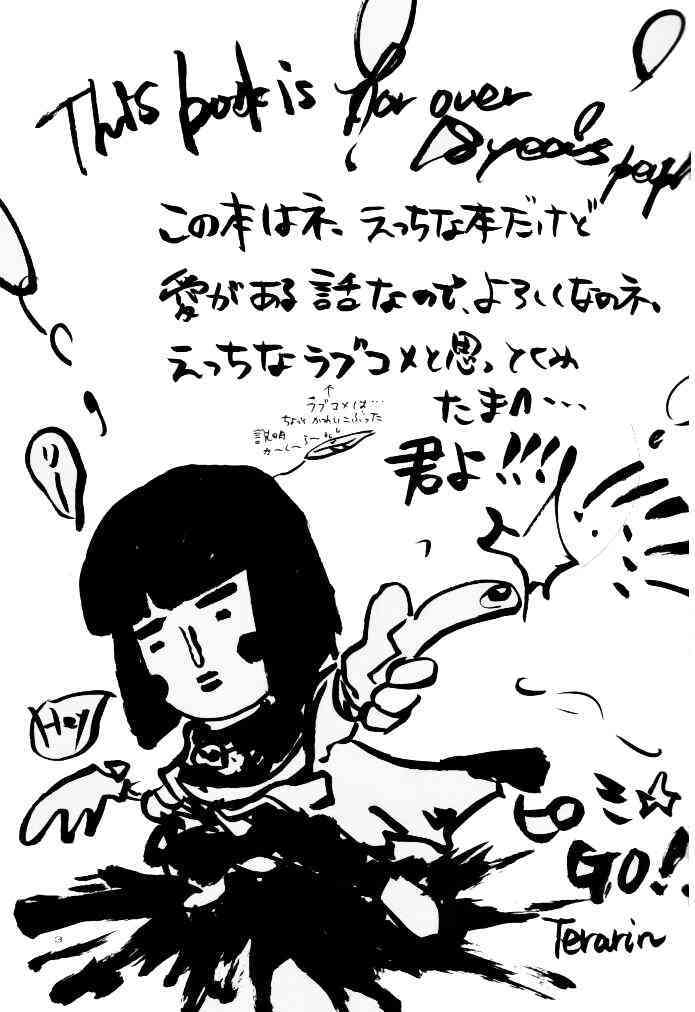 This book is for over
18 years people
この本はネ、えっちな本だけど
愛がある話なので、よろしくなのネ、
えっちなラブコメと思っとくみ
たまへ…
君よ!!!!
↑
ラブコメは…
ちょっとかわいこぶった
説明
リー
Hey
ピロミ☆
GO!!
Terarin
3